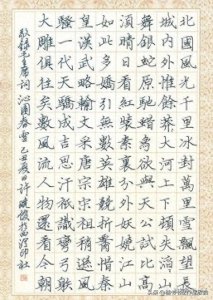 北國風光千里冰封萬里雪飄望長
城內外惟餘莽莽大河上下頓失滔滔山
舞銀蛇原馳蠟象欲與天公試比高
須晴日看紅裝素裹分外妖嬈江山
如此多嬌引無數英雄競折腰惜秦
皇漢武略輸文采唐宗宋祖稍遜風
騷一代天驕成吉思汗祇識彎弓射
大雕俱往矣數風流人物還看今朝
敬錄毛主席詞沁園春雪己丑夏日許於西泠印社